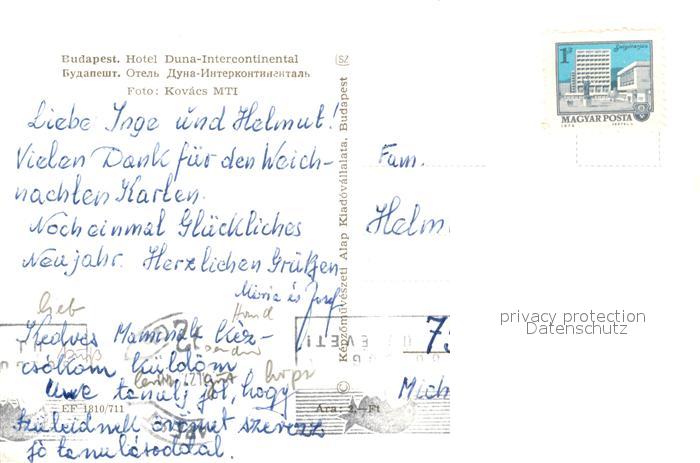 Budapest. Hotel Duna-Intercontinental
Будапешт. Отель Дуна-Интерконтиненталь
Foto: Kovács MTI
Liebe Inge und Helmut!
Vielen Dank für den Weich-
nachten Karten.
Noch einmal Glückliches
Neujahr. Herzlichen Grüßen
Mária és Josef
Kedves Mamának kéz-
csókom küldöm
Uwe tanulj jól, hogy
szüleidnek örömet szerezz
jó tanulásoddal.
EF 1810/711
Ára: 2,-Ft
Képzőművészeti Alap Kiadóvállalata, Budapest
SZ
1Ft
Salgótarján
MAGYAR POSTA
Fam.
Helm
7
Mich
privacy protection
Datenschutz